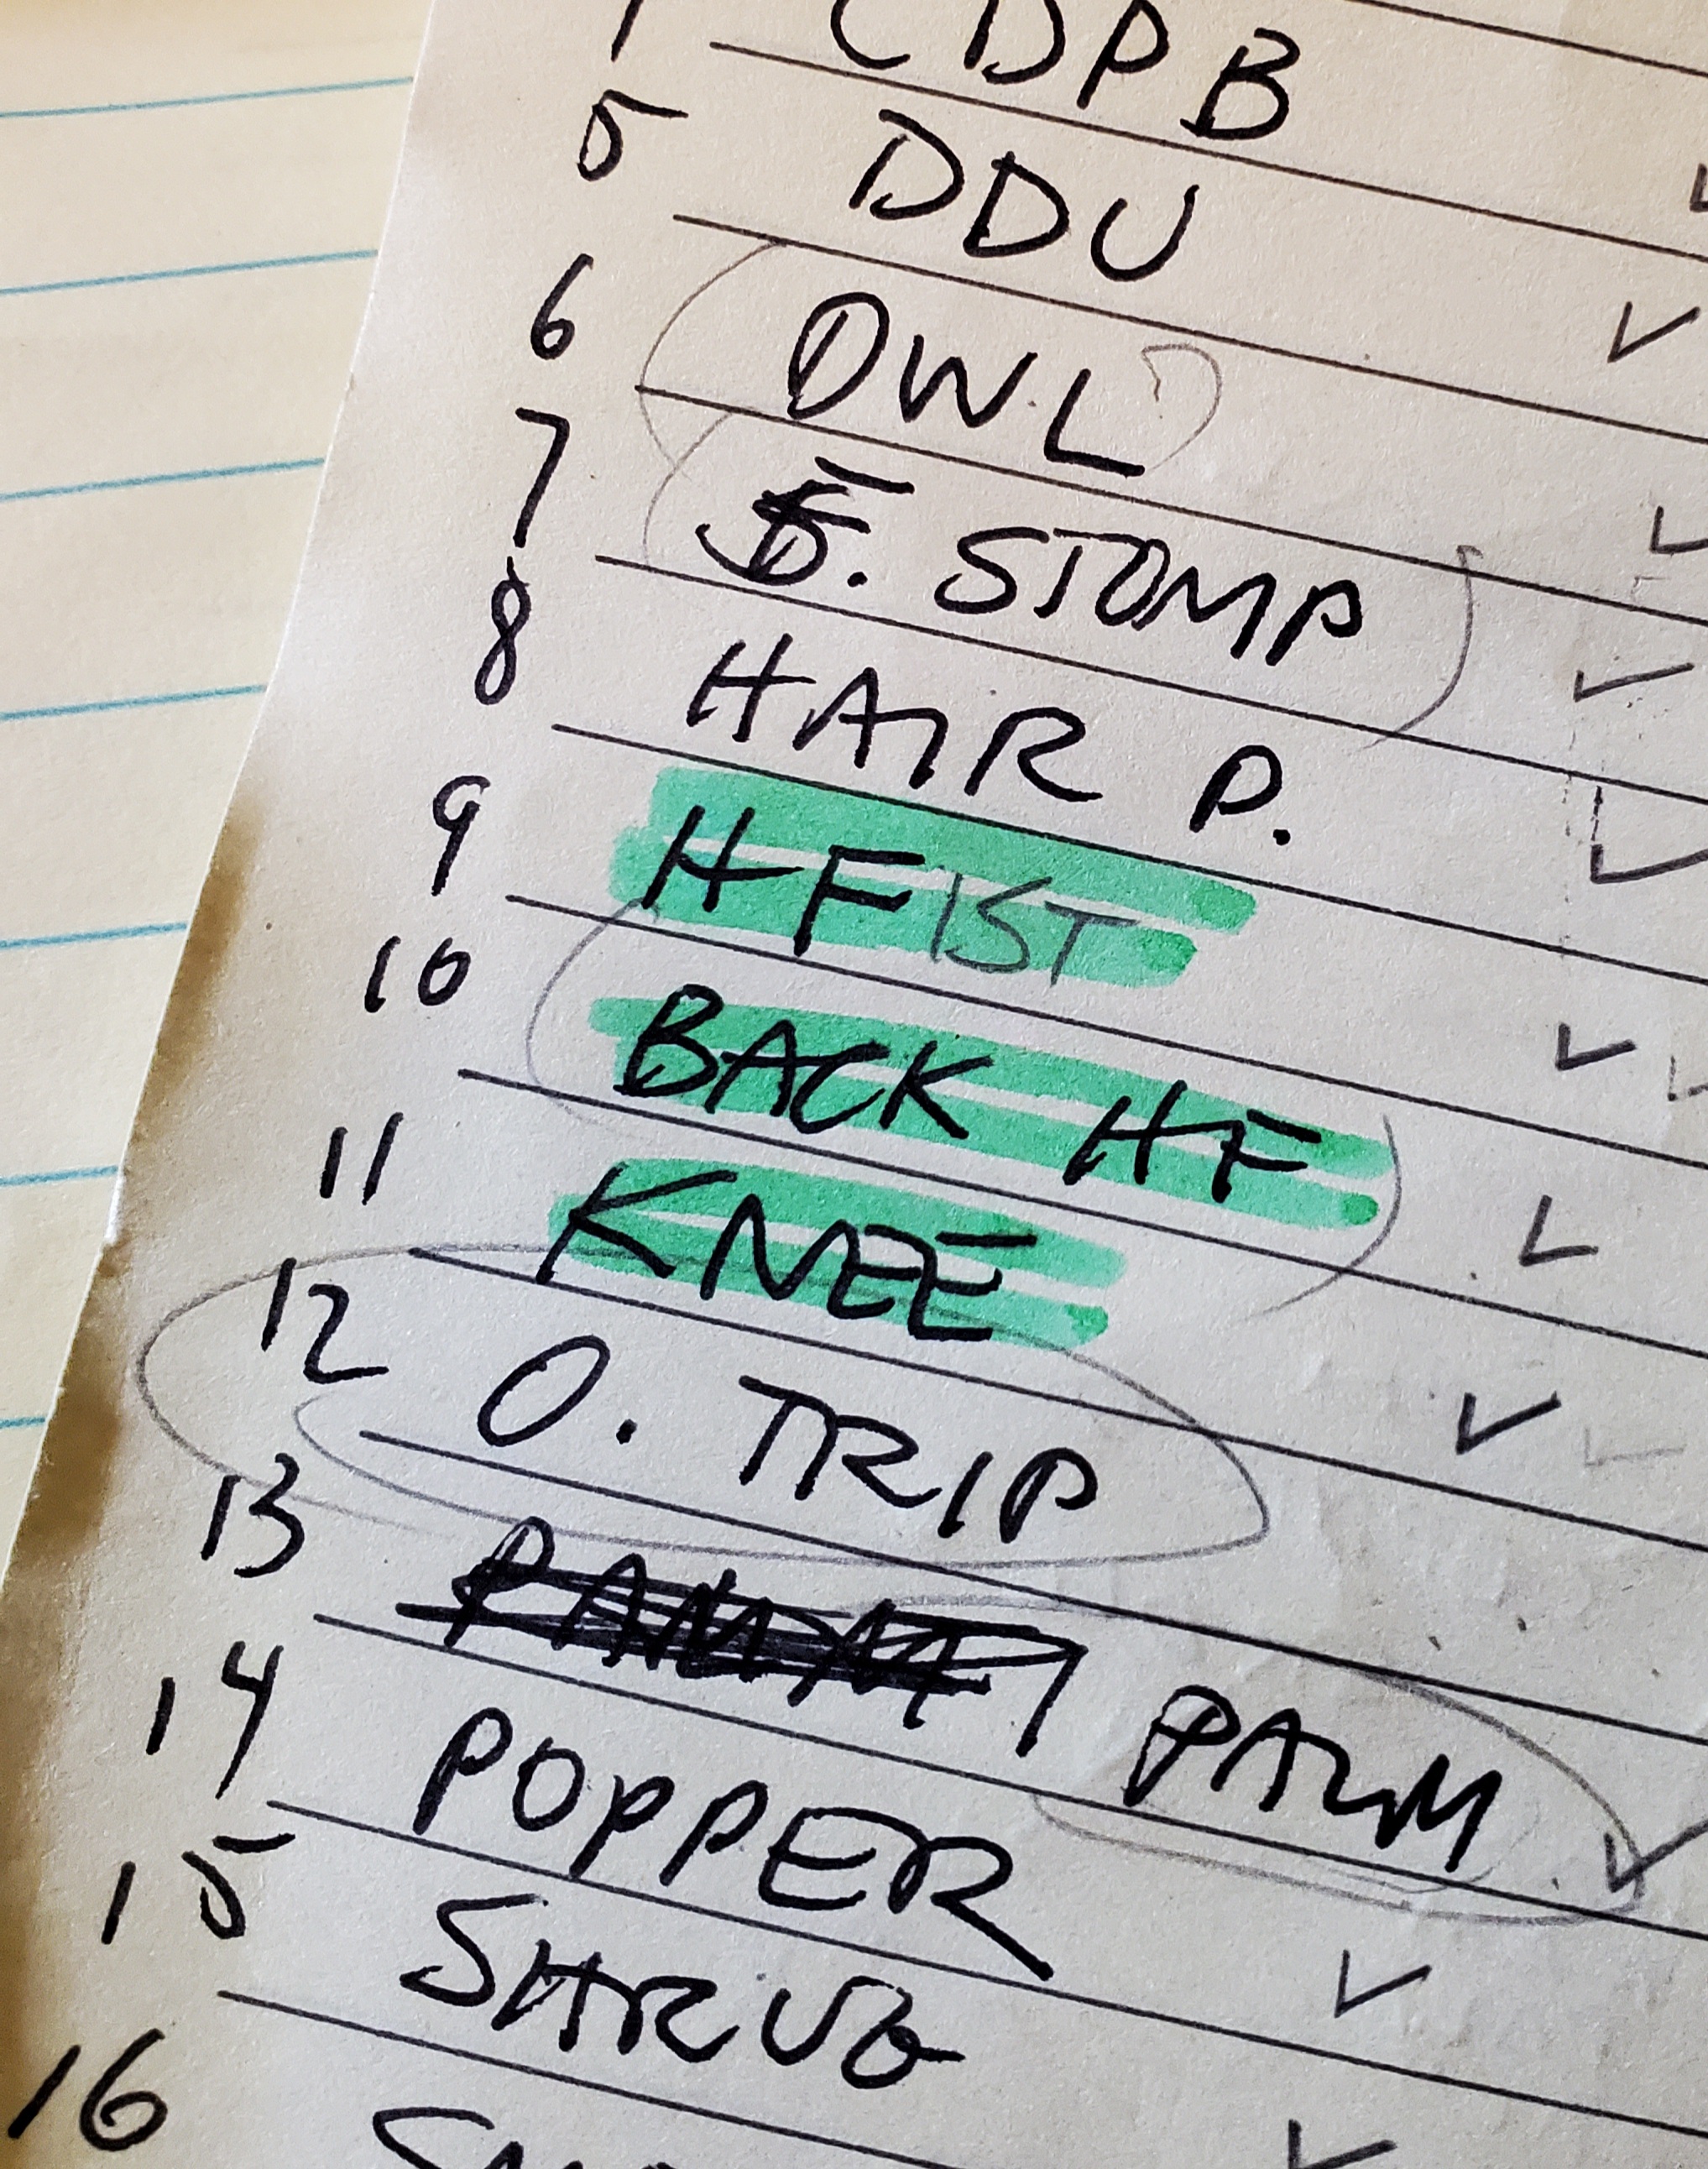 CDPB
5 DDU
6 DWL
7 . STOMP
8 HAIR P.
9 H FIST
10 BACK HF
11 KNEE
12 O. TRIP
13 PALM
14 POPPER
15 SHRUG
16